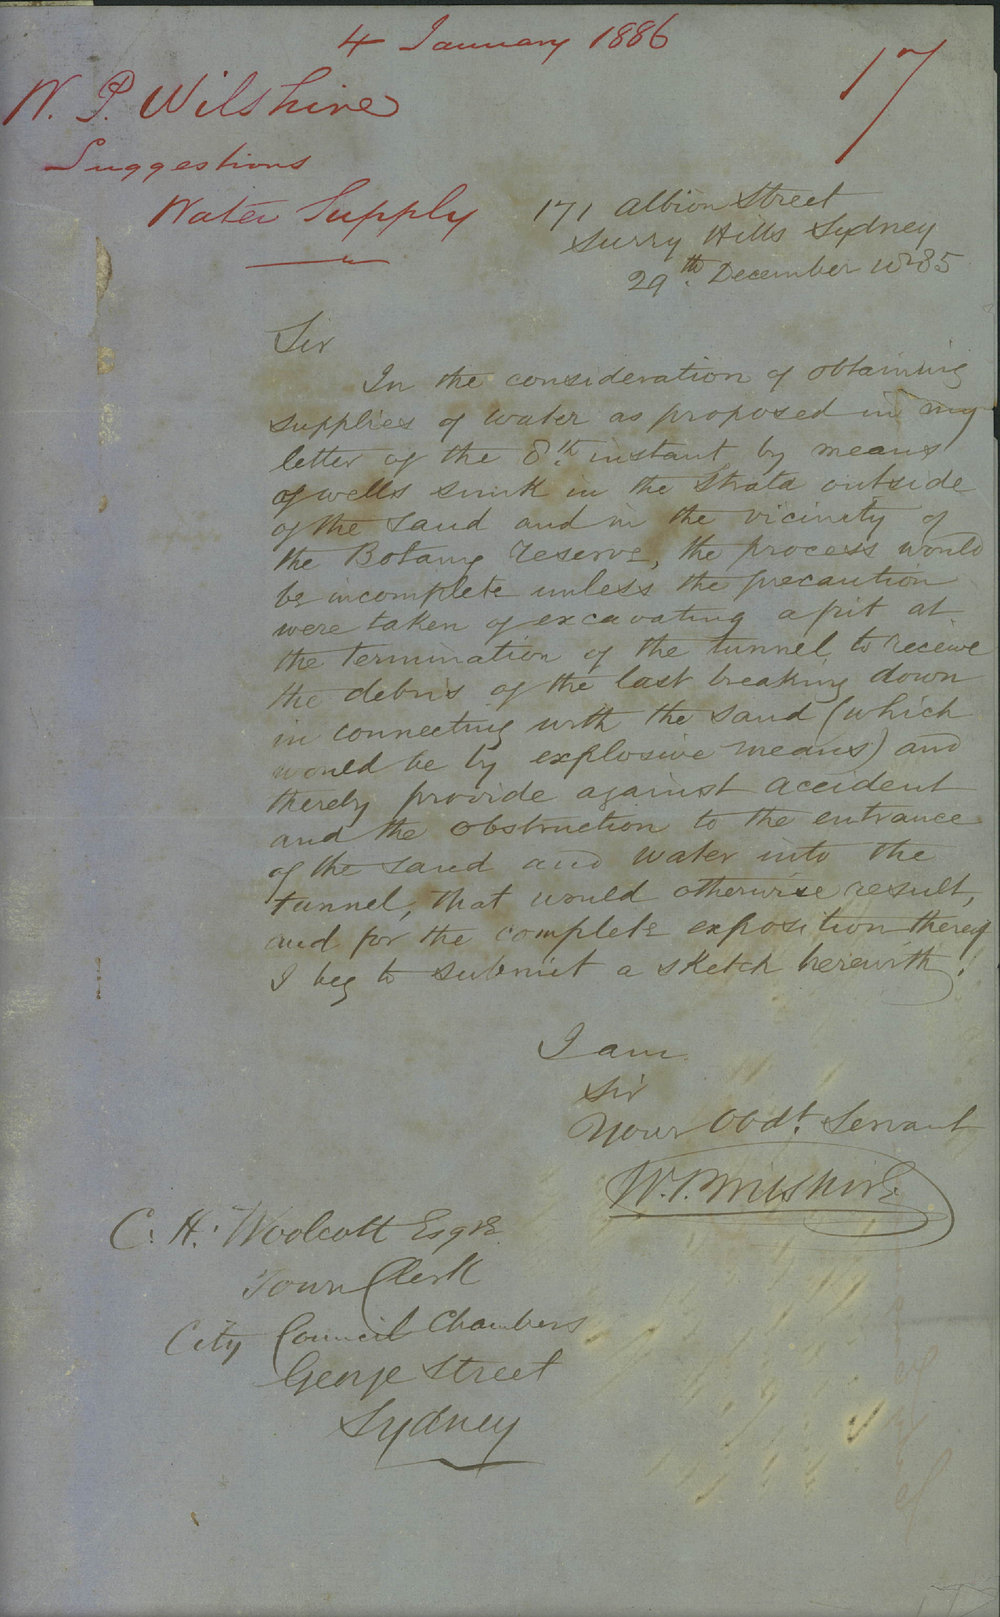 4 January 1886
17
W. P. Wilshire
Suggestions
Water Supply
171 Albion Street
Surry Hills Sydney
29th. December 1885
Sir
In the consideration of obtaining
supplies of water as proposed in my
letter of the 8th. instant by means
of wells sunk in the Strata outside
of the sand and in the vicinity of
the Botany reserve, the process would
be incomplete unless the precaution
were taken of excavating a pit at
the termination of the tunnel to receive
the debris of the last breaking down
in connecting with the sand (which
would be by explosive means) and
thereby provide against accident
and the obstruction to the entrance
of the sand and water into the
tunnel, that would otherwise result,
and for the complete exposition thereof
I beg to submit a sketch herewith.
I am
Sir
Your Obdt. Servant
W. P. Wilshire
C. H. Woolcott Esqre
Town Clerk
City Council Chambers
George Street
Sydney